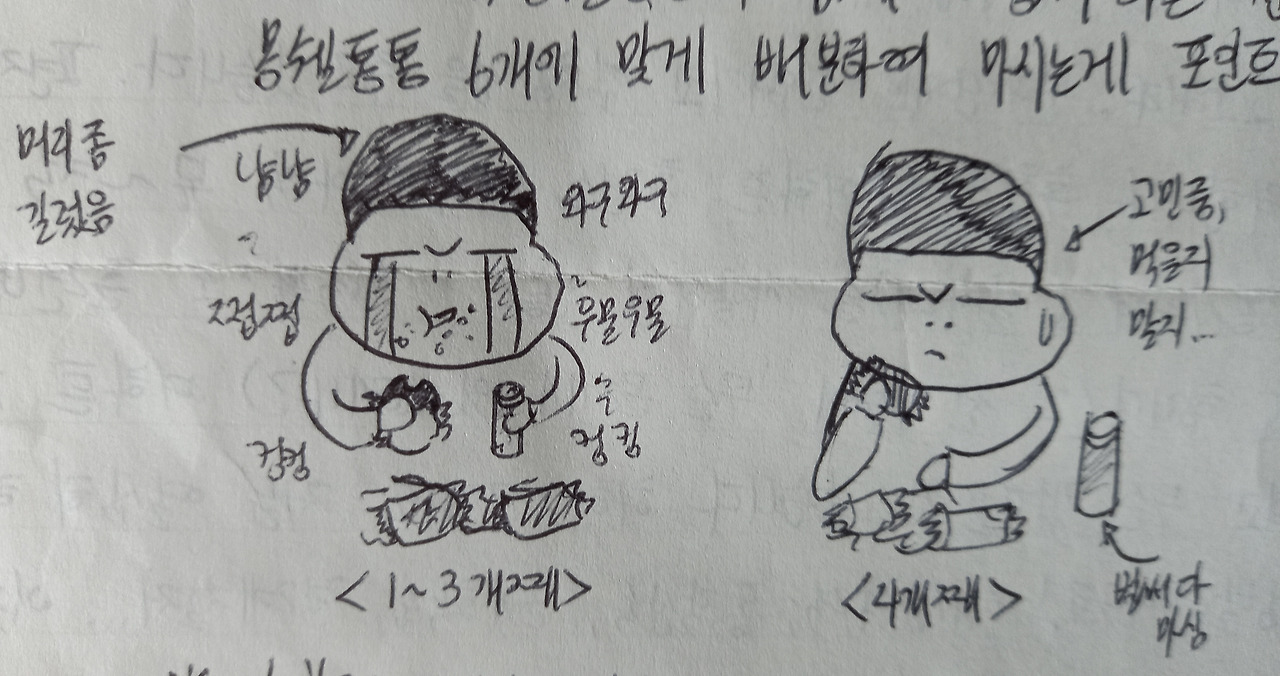 몽쉘통통 6개에 맞게 배분하여 마시는게 포인트
머리좀
길렀음
냠냠
와구와구
쩝쩝
우물우물
컹컹
<1~3개째>
고민중,
먹을지
말지...
<4개째>
벌써다
마심